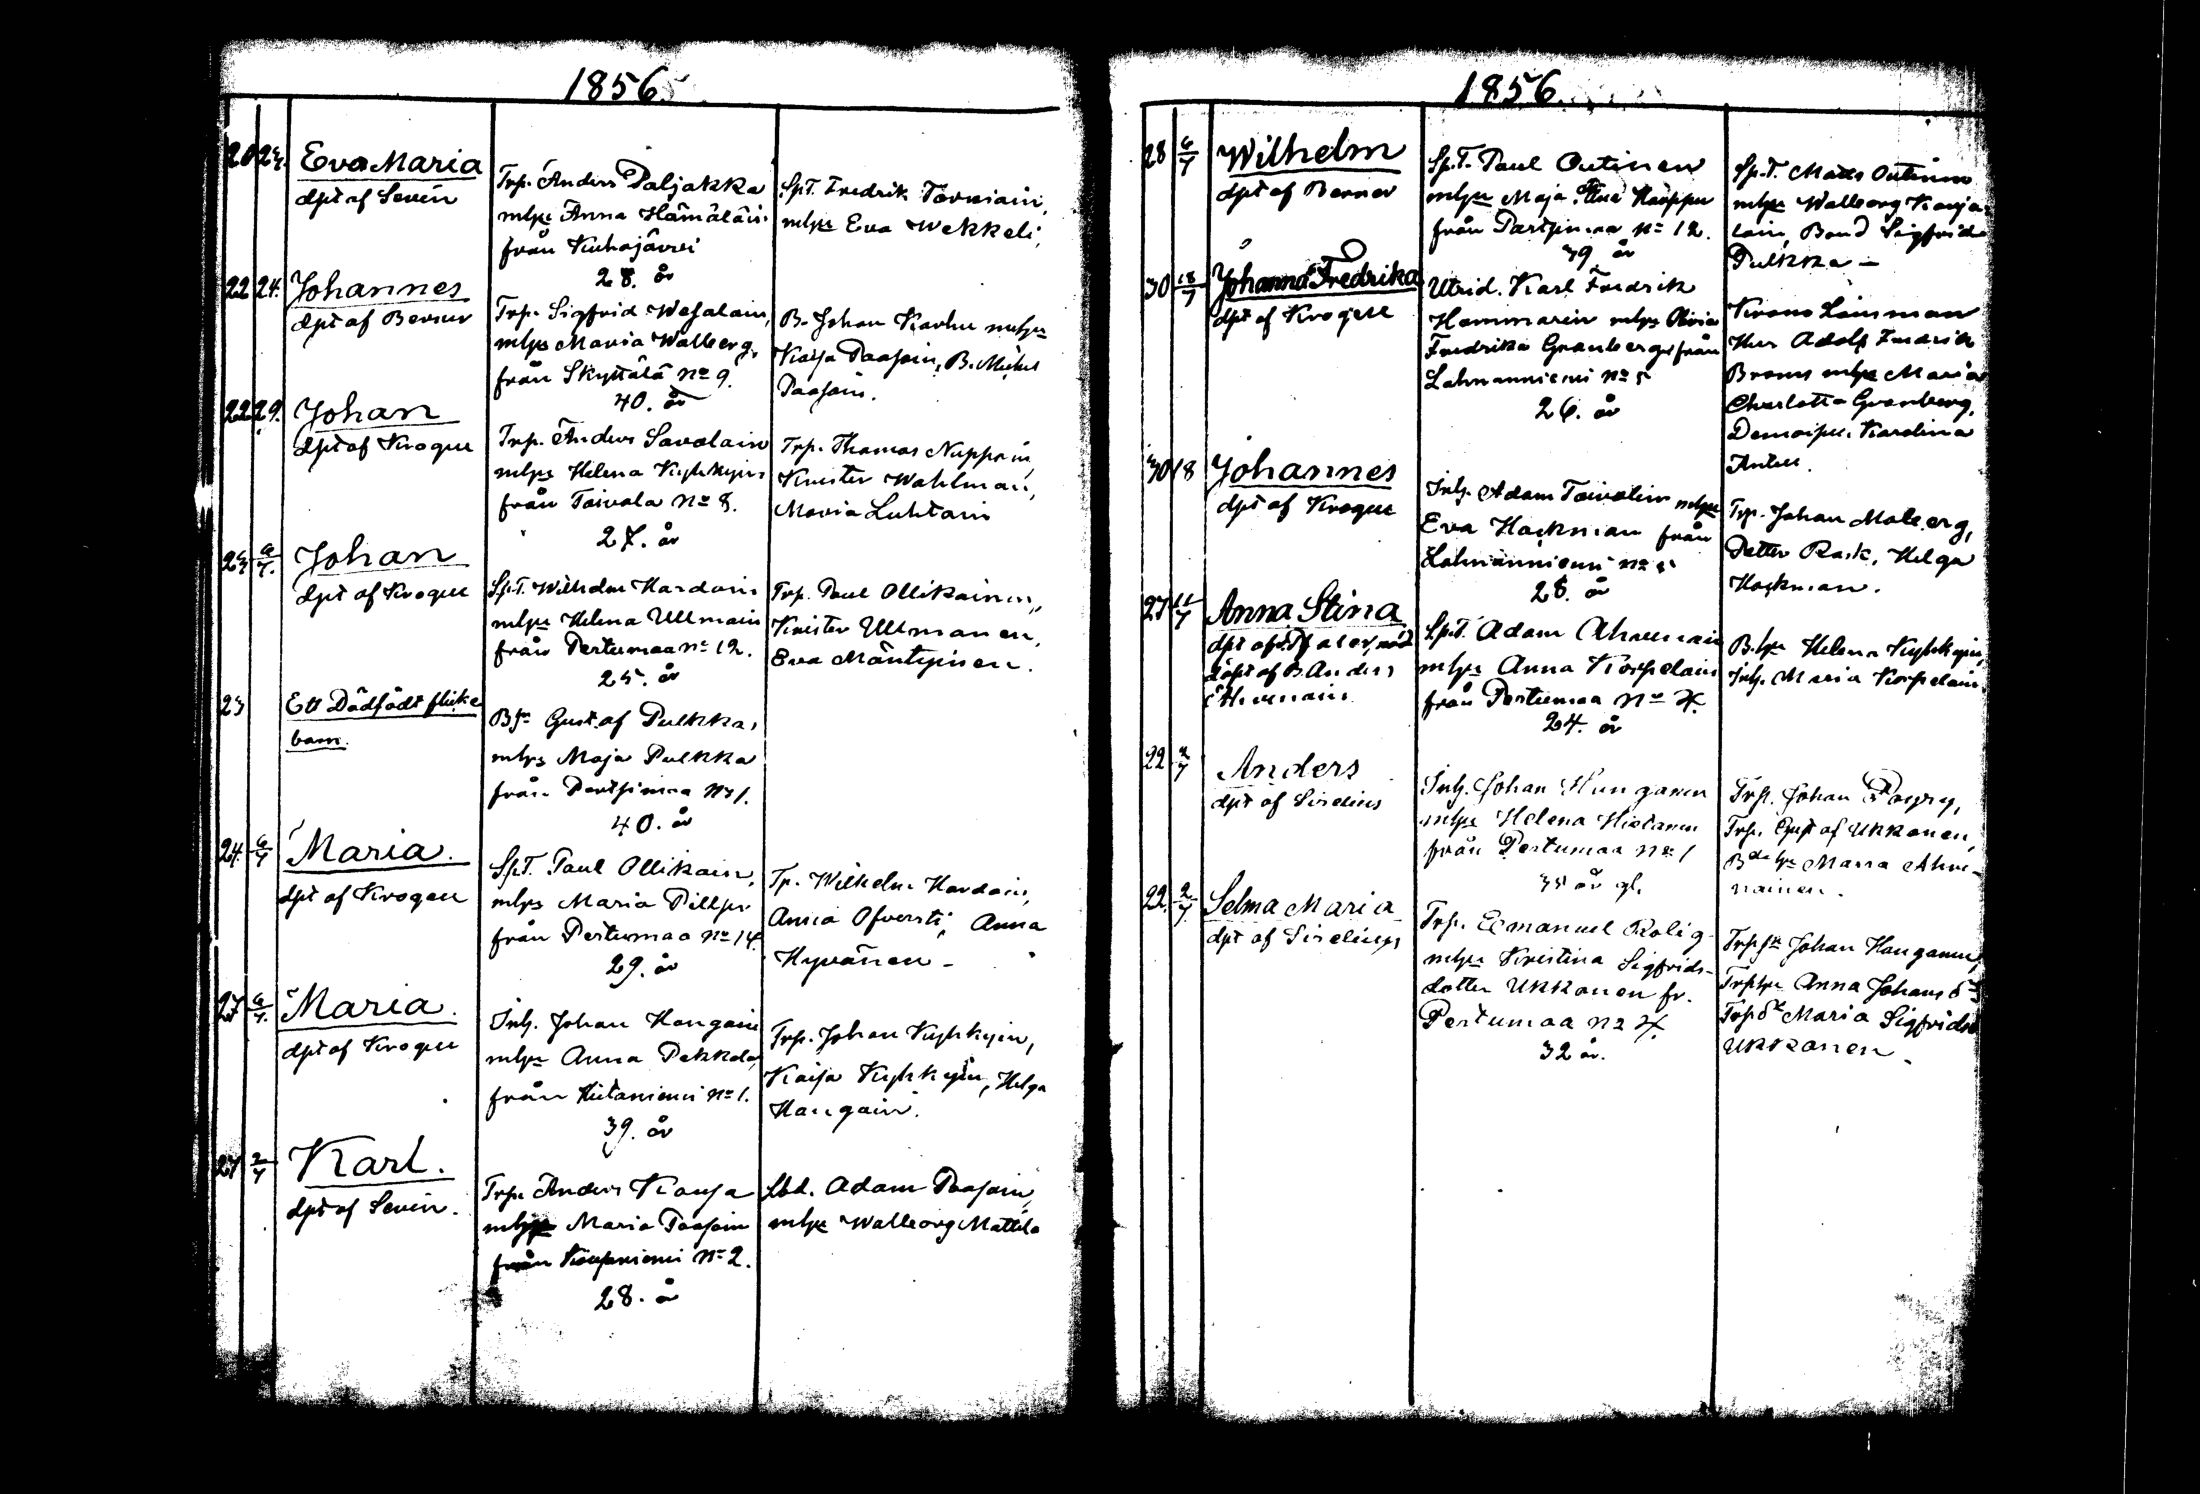 1856.
20 23. Eva Maria
dpt af Sevén
Trp. Anders Paljakka
mhpa Anna Hämäläin.
från Kuhajärvi
28. år
Sp.T. Fredrik Torniain,
mhpa Eva Wekkeli,
22 24. Johannes
dpt af Berner
Trp. Sigfrid Wesalain,
mhpa Maria Walberg,
från Skyttälä No 9.
40. år
B. Johan Karhu mhpa
Kaisa Paasoin, B. Michel
Paasoin.
22 29. Johan
dpt af Krogell
Trp. Anders Savolain
mhpa Helena Kyhkyin
från Toivola No 8.
27. år
Trp. Thomas Nuppoin,
Krister Wahlman,
Maria Luhtain
23 6/7. Johan
dpt af Krogell
Sp.T. Wilhelm Hardoin
mhpa Helena Ullmain
från Pertumaa No 12.
25. år
Trp. Paul Ollikainen,
Krister Ullmanen,
Eva Mäntyinen.
23 Ett Dödfödt flicke
barn.
Bse Gustaf Pulkka,
mhpa Maja Pulkka
från Pertjimaa No 1.
40. år
24. 6/7 Maria.
dpt af Krogell
Sp.T. Paul Ollikain,
mhpa Maria Pillpo
från Pertumaa No 14.
29. år
Tp. Wilhelm Hardoin,
Anna Ofversti, Anna
Hyvänen –
27 6/7. Maria.
dpt af Krogell
Inh. Johan Hangain
mhpa Anna Pekkola,
från Hietaniemi No 1.
39. år
Trp. Johan Kyhkyin,
Kaisa Kyhkyin, Helga
Hangain.
27 2/7 Karl.
dpt af Sevén.
Trp. Anders Kansa
mhpa Maria Paasoin
från Karpniemi No 2.
28. år
Lbd. Adam Paasoin,
mhpa Walborg Mattila
1856.
28 6/7 Wilhelm
dpt af Berner
Sp.T. Paul Outinen
mhpa Maja Lisa Kauppu
från Partjimaa No 12.
39 år
Sp.T. Matts Outinen
mhpa Walborg Karja-
lain, Bond Sigfrid
Pulkka –
30 18/7 Johanna Fredrika
dpt af Krogell
Utrid. Karl Fredrik
Hammarin mhpa Olivia
Fredrika Granberg från
Lahnanniemi No 5
26. år
Krono Länsman
Herr Adolf Fredrik
Broms mhpa Maria
Charlotta Granberg,
Demoiselle Karolina
Antell.
30 18 Johannes
dpt af Krogell
Inh. Adam Toivolin mhpa
Eva Hackman från
Lahnanniemi No 5
28. år
Trp. Johan Malberg,
Petter Rask, Helga
Hackman.
27 11/7 Anna Stina
döpt af B. Anders
Ahvenain
Sp.T. Adam Ahvenain
mhpa Anna Korpelain
från Pertumaa No 4.
24. år
B.hu Helena Kyhkyin,
Inh. Maria Korpelain.
22 2/7 Anders
dpt af Sirelius
Inh. Johan Hunganen
mhpa Helena Hietanen
från Pertumaa No 1
35 år gl.
Trp. Johan Poyry,
Trp. Gustaf Ukkonen,
Bde hu Maria Ahve-
nainen.
22. 2/7 Selma Maria
dpt af Sirelius
Trp. Emanuel Rolig
mhpa Kristina Sigfrids-
dotter Ukkonen fr.
Pertumaa No 4.
32 år.
Trpsn Johan Hanganen,
Trphu Anna Johansdr
Trpdr Maria Sigfridsd
Ukkonen.